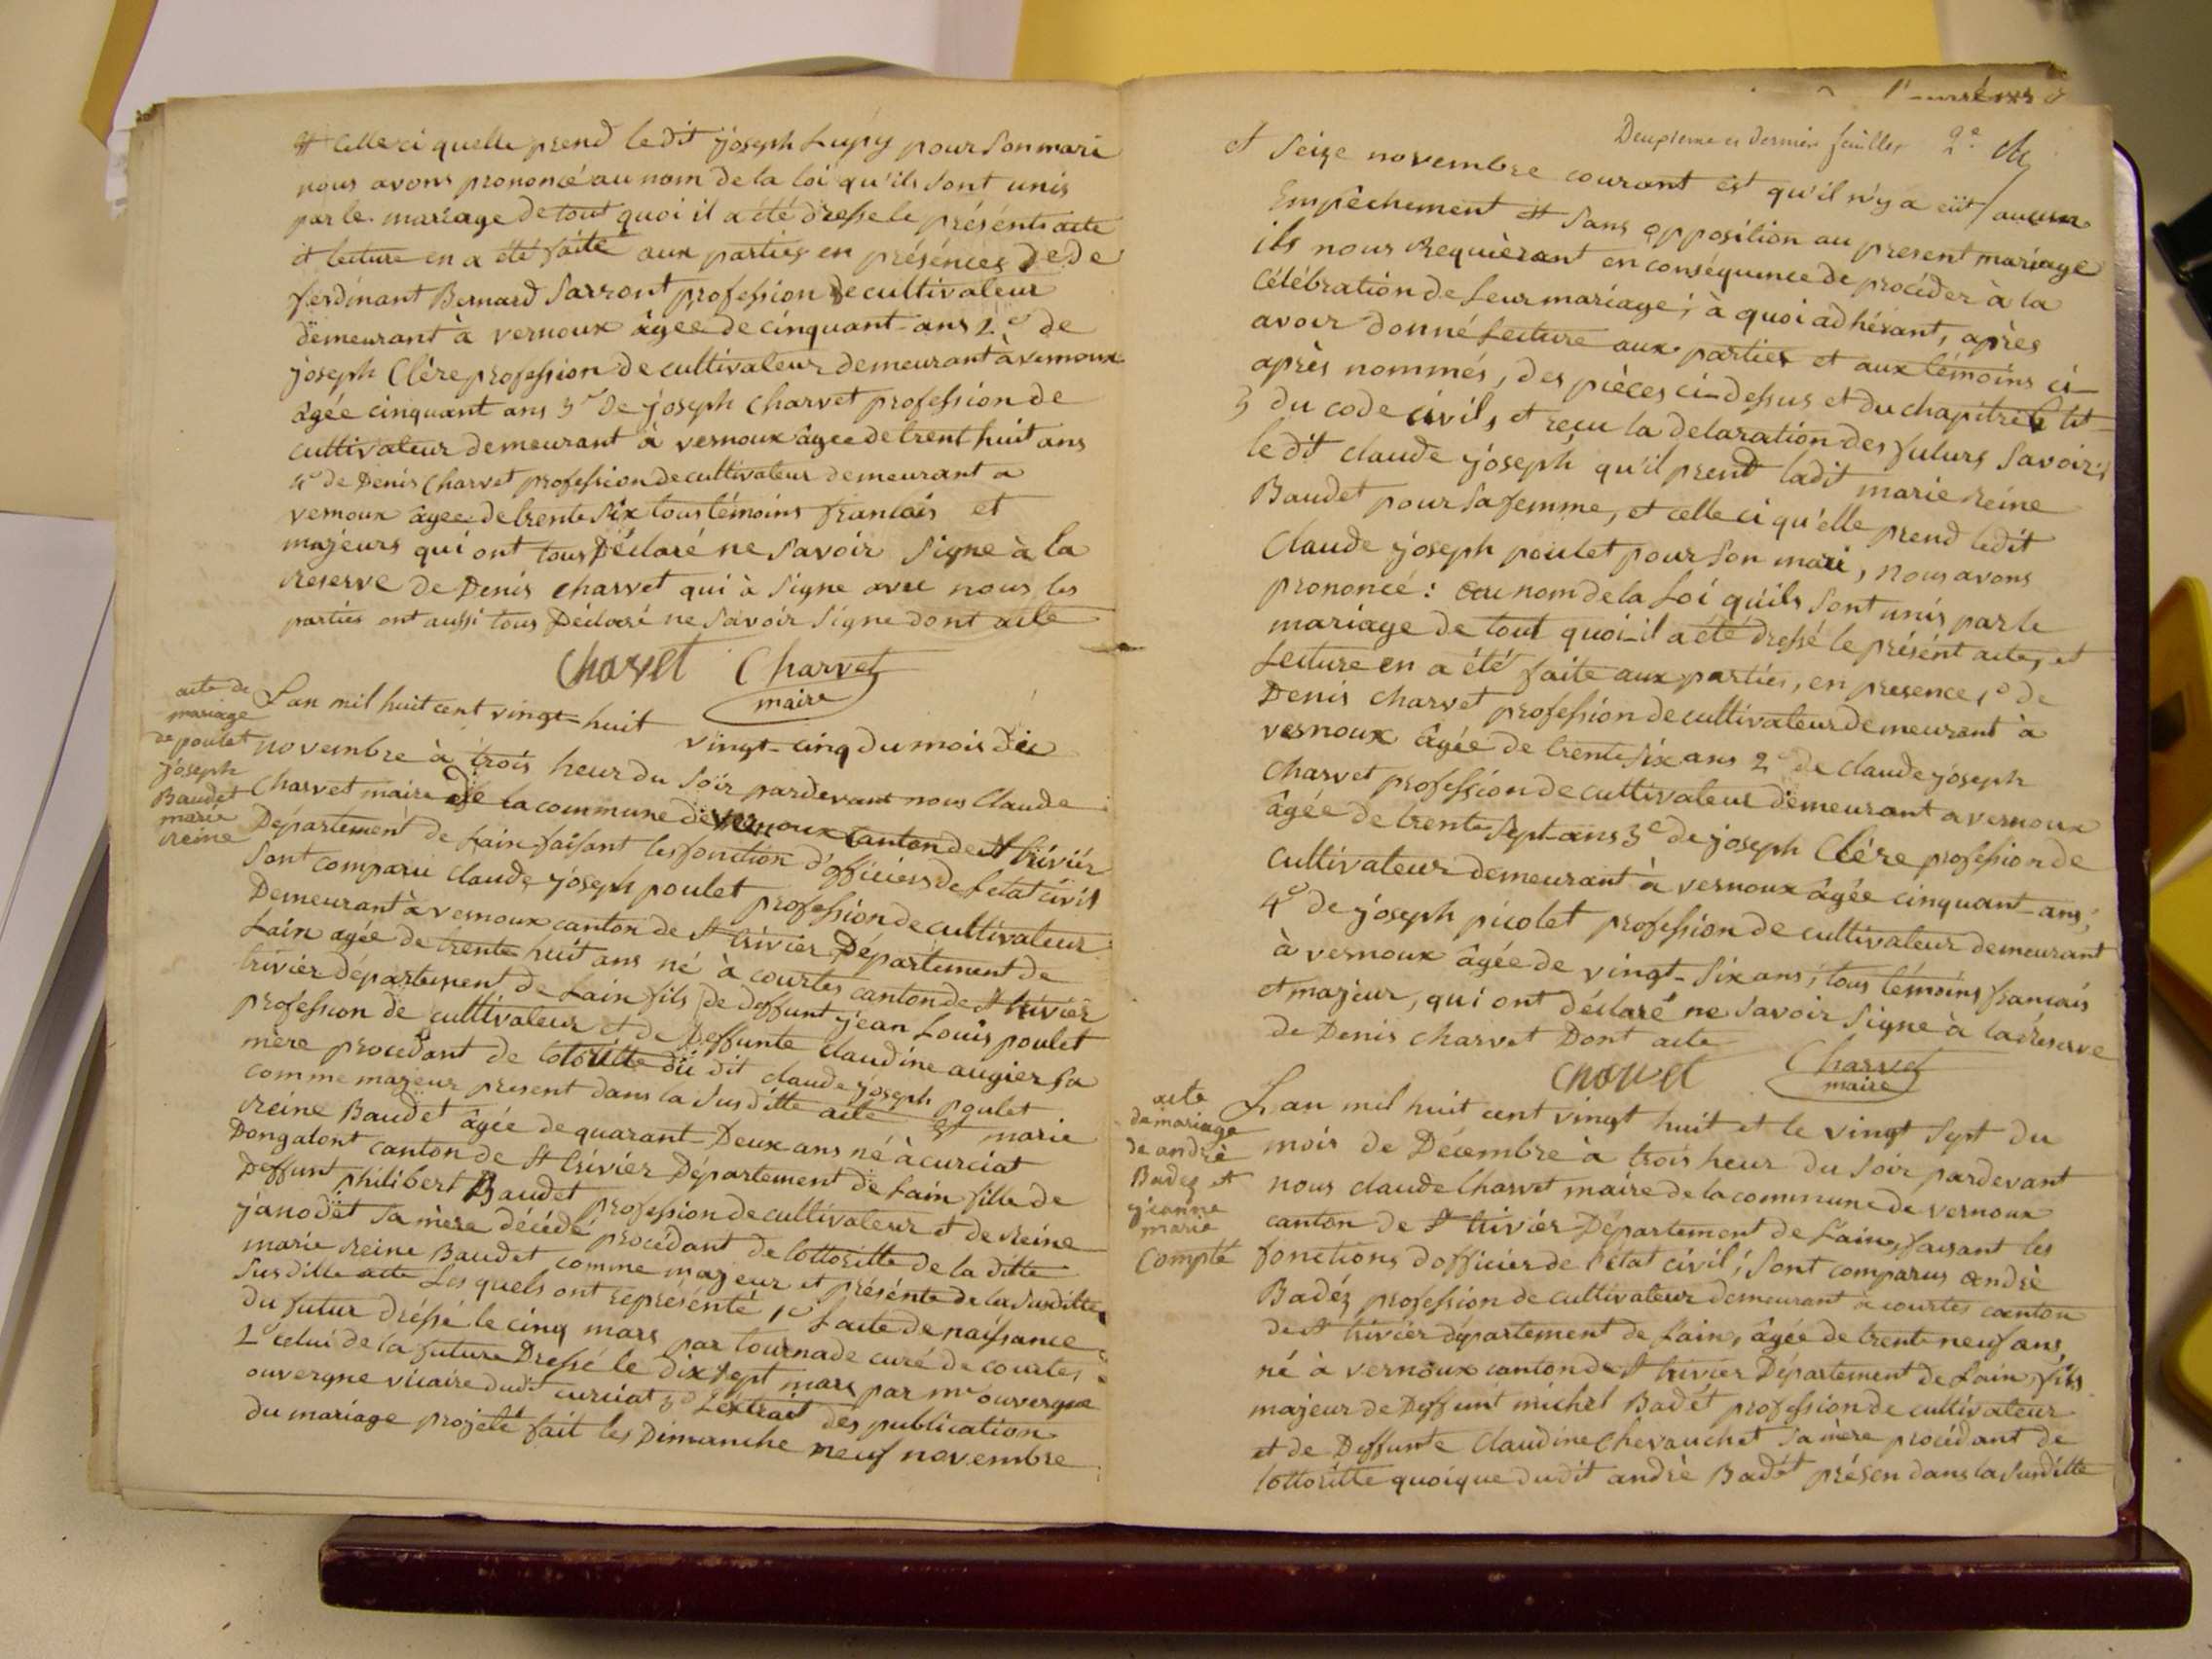 et celle ci quelle prend ledit joseph Lupy pour Son mari
nous avons prononcé au nom de la loi qu'ils Sont unis
par le mariage de tout quoi il a été dresse le présénts acte
et lecture en a été faite aux parties en présénces De De
ferdinant Bernard Sarront profession de cultivateur
demeurant à vernoux âgée de cinquant-ans 2º de
joseph Clère profession de cultivateur demeurant à vernoux
âgée cinquant ans 3º de joseph Charvet profession de
cultivateur demeurant à vernoux âgee de trent huit ans
4º de Denis Charvet profession de cultivateur demeurant a
vernoux âgee de trente Six tous témoins francais et
majeurs qui ont tous Déclaré ne Savoir Signe à la
reserve de Denis charvet qui à Signe avec nous les
parties ont aussi tous Déclaré ne Savoir Signe dont acte
Charvet Charvet
maire
acte de
mariage
de poulet
joseph
Baudet
marie
reine
L'an mil huit cent vingt-huit vingt-cinq du mois de
novembre à trois heur du Soir pardevant nous Claude
Charvet maire de la commune de vernoux canton de St trivier
Département de Lain faisant les fonction d'officiers de L'etat civil
Sont comparu claude joseph poulet profession de cultivateur
Demeurant à vernoux canton de St trivier Département de
Lain agée de trente huit ans né à courtes canton de St trivier
trivier département de Lain fils de deffunt jean Louis poulet
profession de cultivateur et de Deffunte claudine augier Sa
mère procedant de lotoritte du dit claude joseph poulet
comme majeur present dans la Susditte acte et marie
reine Baudet âgée de quarant-Deux ans né à curciat
Dongalont canton de St trivier Département de Lain fille de
Deffunt philibert Baudet profession de cultivateur et de reine
janodet Sa mère décédé procédant de lottoritte de la ditte
marie reine Baudet comme majeur et présénte de la Susditte
Susditte acte Les quels ont représénté 1º L'acte de naissance
du futur dréssé le cinq mars par tournade curé de courtes
2º celui de la future Dressé le dix Sept mars par mr ouvergne
ouvergne vicaire dudit curciat 3º Lextrait des publication
du mariage projeté fait les Dimanche neuf novembre
Deuxieme et dernier feuillet 2e
et Seize novembre courant est qu'il n'y a eüt / aucun
Empêchement et Sans opposition au present mariage
ils nous Requièrant en conséquence de procéder à la
célébration de leur mariage; à quoi adhérant, après
avoir donné Lecture aux parties et aux témoins ci-
après nommés, des pièces ci-dessus et du chapitre 6 tit-
5 du code civil, et reçu la déclaration des futurs Savoir;
ledit claude joseph qu'il prent ladit marie reine
Baudet pour Sa femme, et celle ci qu'elle prend ledit
Claude joseph poulet pour Son mari, nous avons
prononcé: au nom de la Loi qu'ils Sont unis par le
mariage de tout quoi-il a été dressé le présént acte, et
Lecture en a été faite aux parties, en presence 1º de
Denis charvet profession de cultivateur demeurant à
vernoux âgée de trente six ans 2º de claude joseph
charvet profession de cultivateur demeurant a vernoux
âgée de trente Sept-ans 3º de joseph Clère profession de
cultivateur demeurant à vernoux âgée cinquant-ans;
4º de joseph picolet profession de cultivateur demeurant
à vernoux âgée de vingt-Six ans; tous témoins francais
et majeur, qui ont déclaré ne Savoir Signe à la reserve
de Denis charvet Dont acte
charvet Charvet
maire
acte
de mariage
de andrè
Badez et
jeanne
marie
Compte
L'an mil huit cent vingt huit et le vingt Sept du
mois de Décembre à trois heur du Soir pardevant
nous claude Charvet maire de la commune de vernoux
canton de St trivier Département de Lain, faisant les
fonctions d'officier de l'état civil; Sont comparus andrè
Badéz profession de cultivateur demeurant à courtes canton
de St trivier département de Lain, âgée de trente neuf ans,
né à vernoux canton de St trivier Département de Lain, fils
majeur de Deffunt michel Badét profession de cultivateur
et de Deffunte Claudine Chevauchet Sa mère procédant de
lottoritte quoique dudit andrè Badét présen dans la Susditte